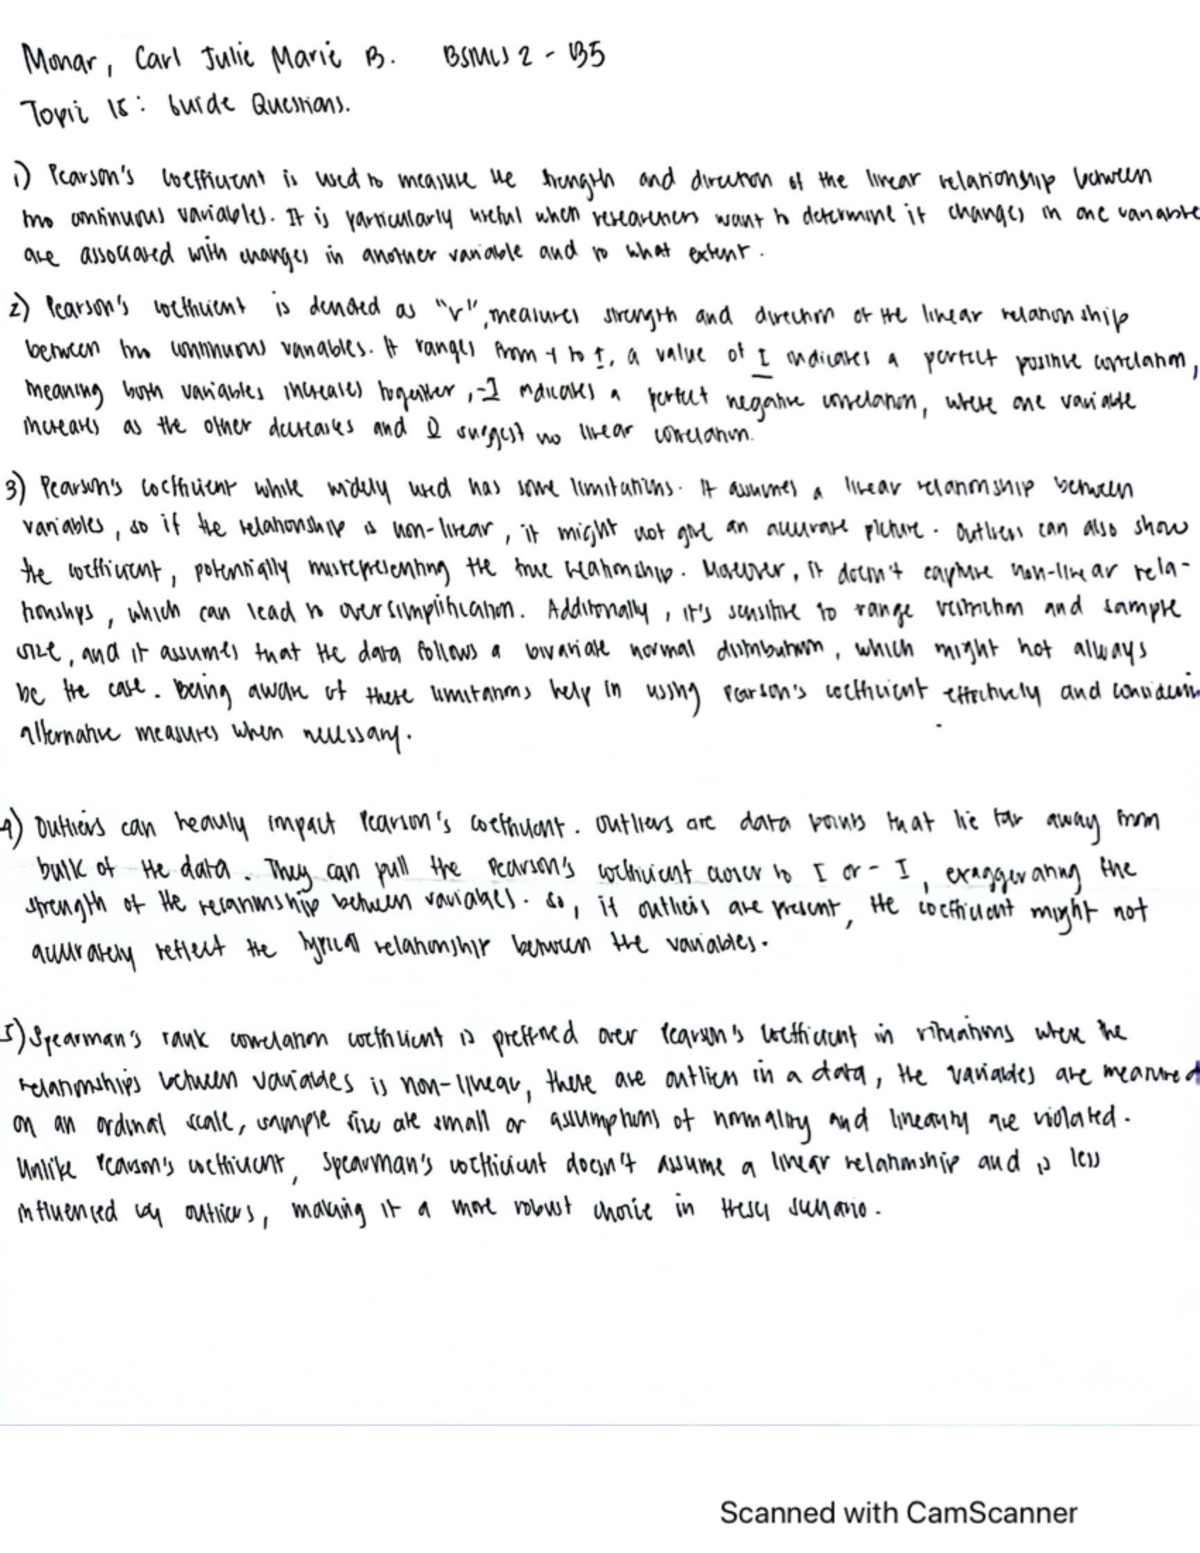 Monar, Carl Julie Marie B. BSMLS 2 - B5
Topic 15: Guide Questions.
1) Pearson's coefficient is used to measure the strength and direction of the linear relationship between
two continuous variables. It is particularly useful when researchers want to determine if changes in one variable
are associated with changes in another variable and to what extent.
2) Pearson's coefficient is denoted as "r", measures strength and direction of the linear relationship
between two continuous variables. It ranges from -1 to 1, a value of 1 indicates a perfect positive correlation,
meaning both variables increases together, -1 indicates a perfect negative correlation, where one variable
increases as the other decreases and 0 suggest no linear correlation.
3) Pearson's coefficient while widely used has some limitations. It assumes a linear relationship between
variables, so if the relationship is non-linear, it might not give an accurate picture. Outliers can also show
the coefficient, potentially misrepresenting the true relationship. Moreover, it doesn't capture non-linear rela-
tionships, which can lead to oversimplification. Additionally, it's sensitive to range restriction and sample
size, and it assumes that the data follows a bivariate normal distribution, which might not always
be the case. Being aware of these limitations help in using Pearson's coefficient effectively and considerin
alternative measures when necessary.
4) Outliers can heavily impact Pearson's coefficient. Outliers are data points that lie far away from
bulk of the data. They can pull the Pearson's coefficient closer to 1 or -1, exaggerating the
strength of the relationship between variables. So, if outliers are present, the coefficient might not
accurately reflect the typical relationship between the variables.
5) Spearman's rank correlation coefficient is preffered over Pearson's coefficient in situations where the
relationships between variables is non-linear, there are outliers in a data, the variables are measured
on an ordinal scale, sample size are small or assumptions of normality and linearity are violated.
Unlike Pearson's coefficient, Spearman's coefficient doesn't assume a linear relationship and is less
influenced by outliers, making it a more robust choice in these scenario.
Scanned with CamScanner